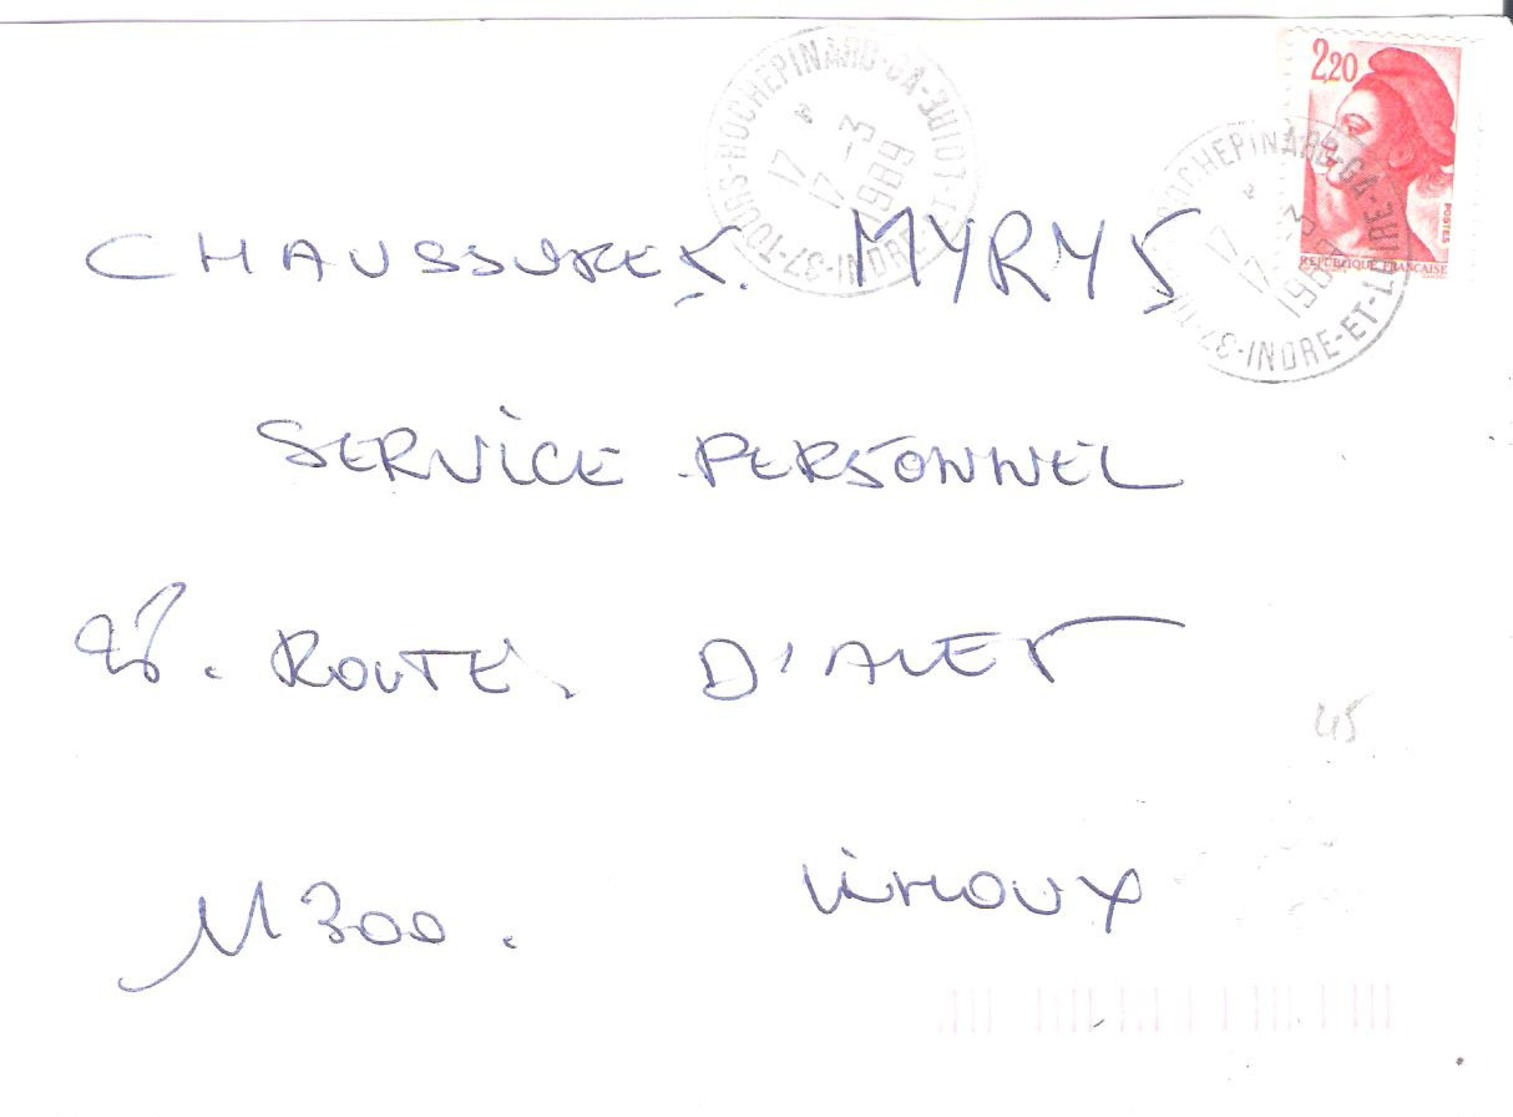 37-TOURS-ROCHEPINARD-CA-37-INDRE-ET-LOIRE
17 H
17 -3
1989
2,20
POSTES
REPUBLIQUE FRANCAISE
ROCHEPINARD-CA-37-INDRE-ET-LOIRE
17
17 -3
1989
CHAUSSURES. MYRYS
SERVICE PERSONNEL
28. ROUTE. D'ALET
45
11300. LIMOUX